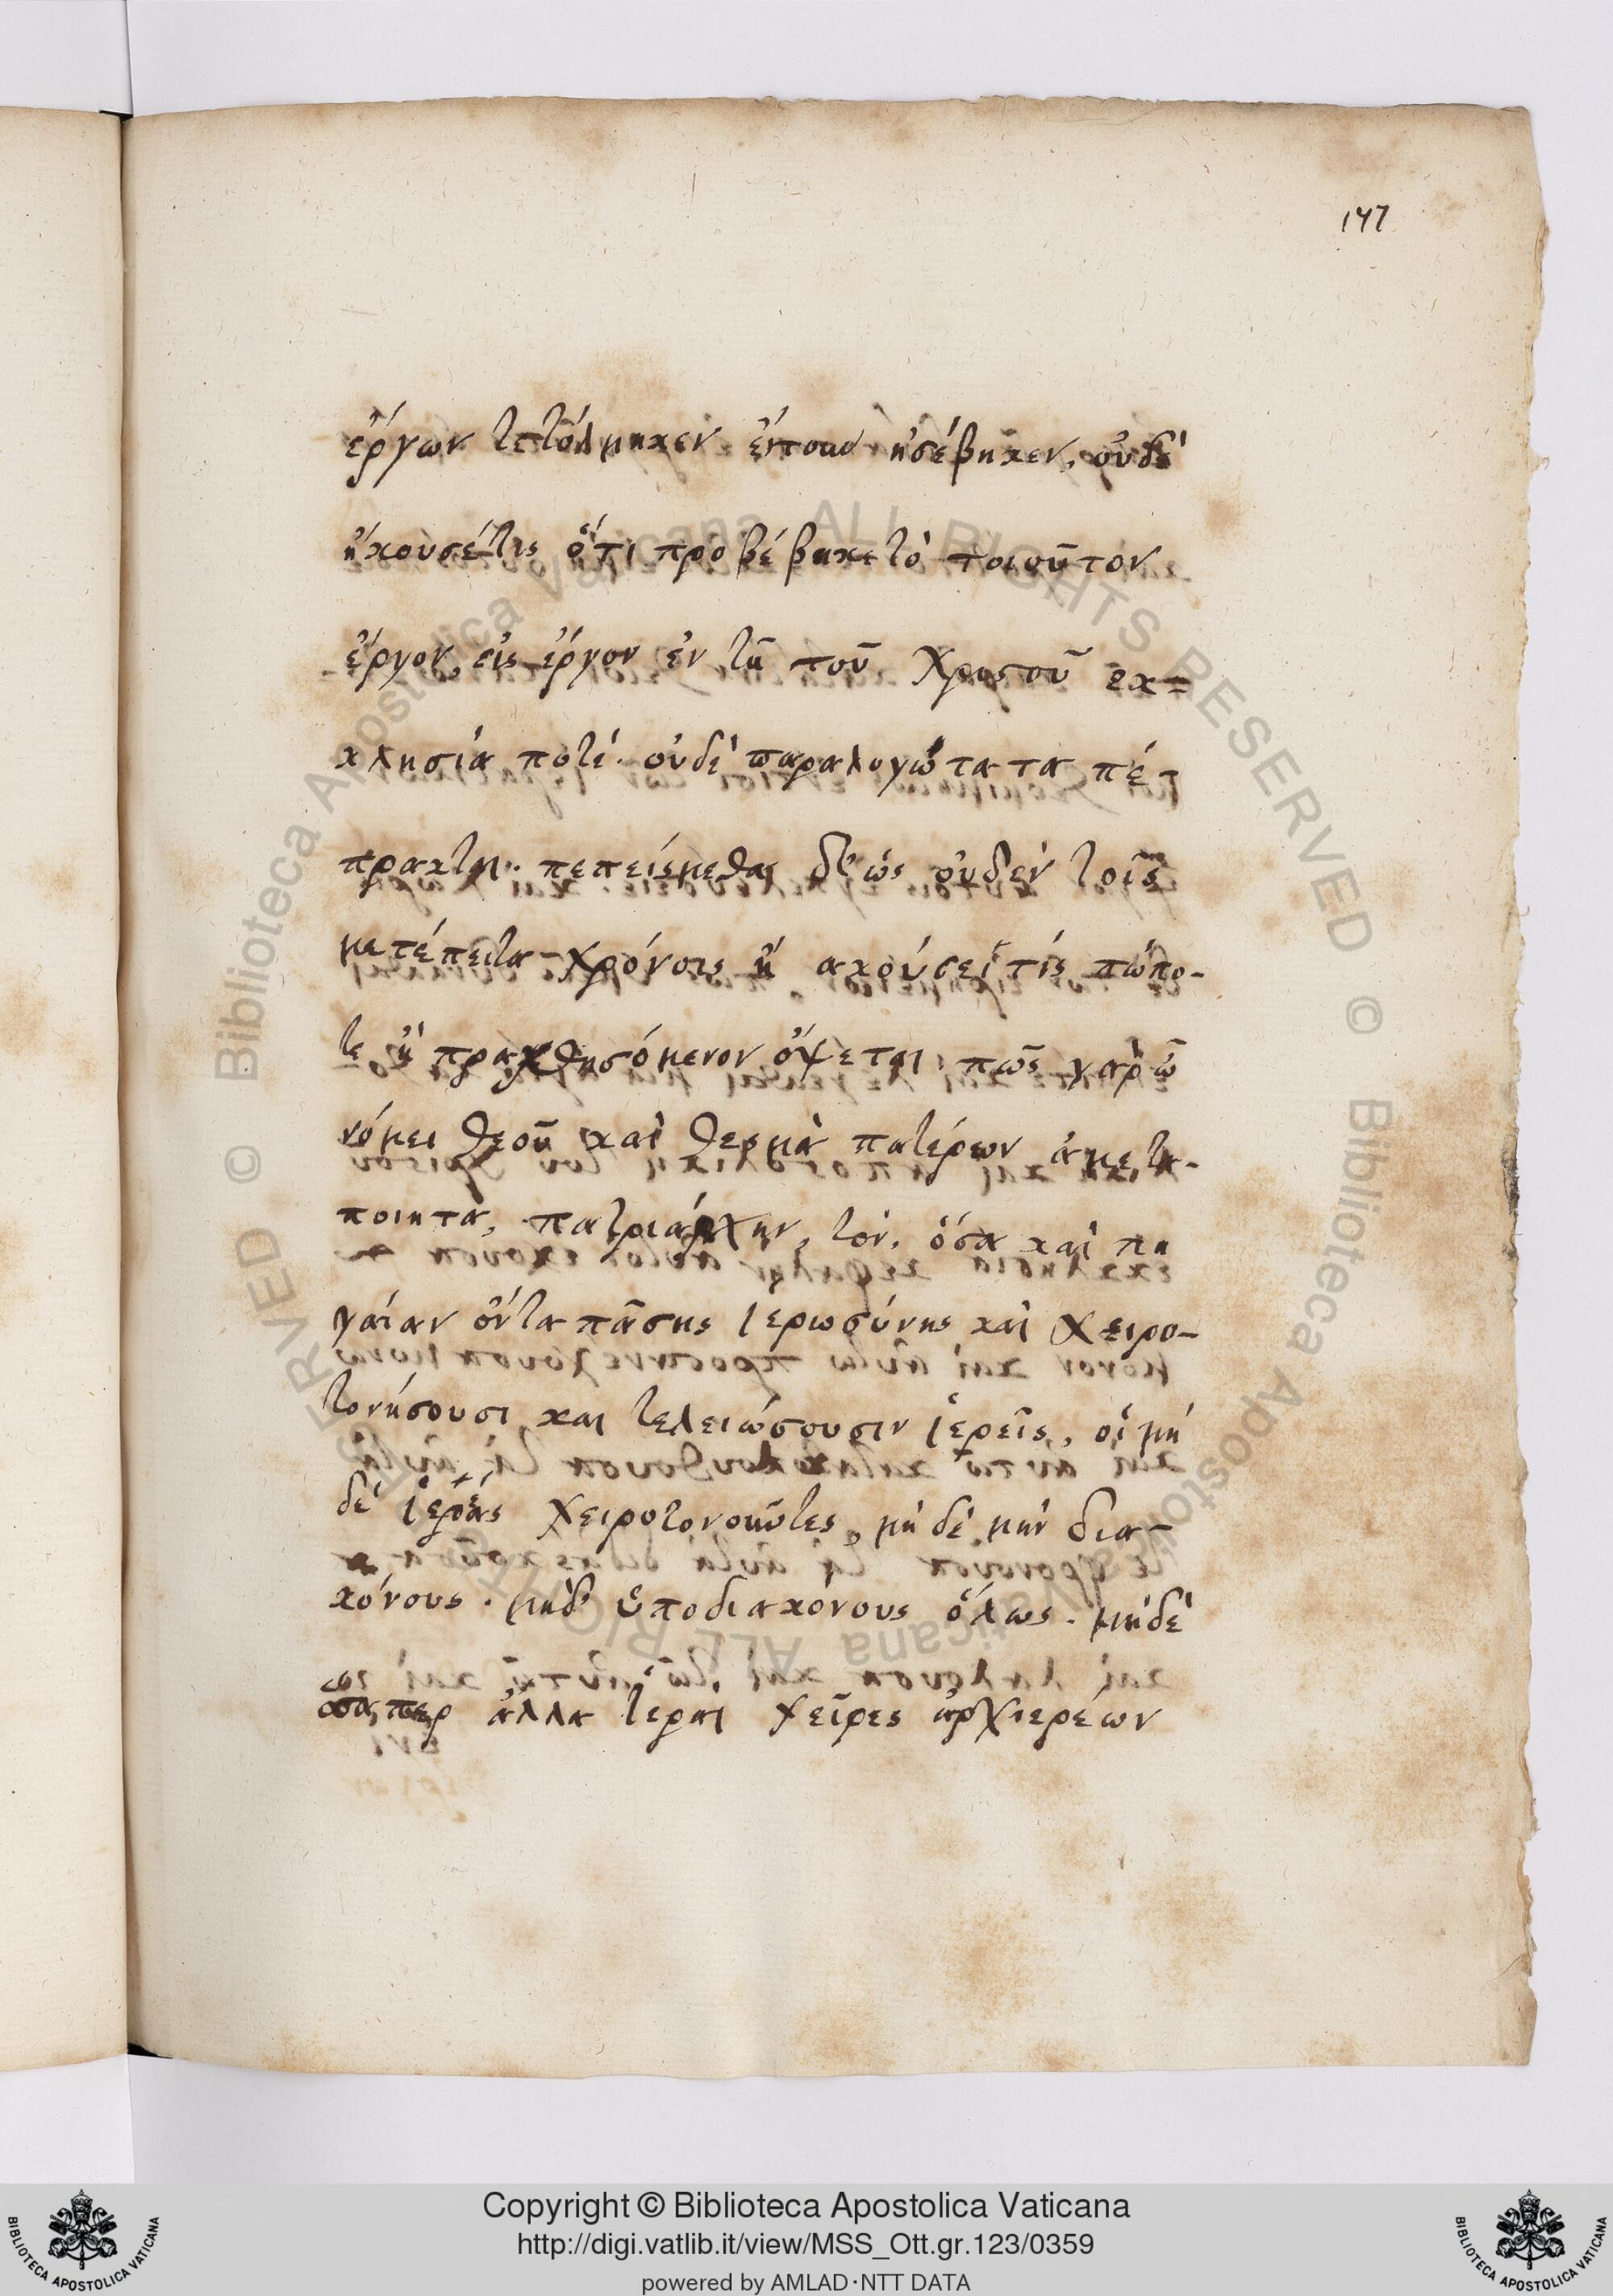 147
ἔργων τετόλμηκεν ἔπους ἠσέβηκεν, οὐδὲ
ἤκουσέ τις ὅτι προβέβηκε τὸ τοιοῦτον
ἔργον, εἰς ἔργον ἐν τῇ τοῦ Χριστοῦ ἐκ=
κλησία ποτέ. οὐδὲ παραλογώτατα πέ-
πρακτη. πεπείσμεθα δ' ὡς οὐδὲν τοῖς
μετέπειτα χρόνοις ἢ ακούσεί τίς πώπο-
τε ἢ πραχθησόμενον ὄψεται, πῶς γὰρ ὦ
νόμει θεοῦ καὶ θεσμὰ πατέρων ἀμετα-
ποιητὰ, πατριάρχην, τὸν, ὅσα καὶ πη
γαίαν ὄντα πάσης ἱερωσύνης καὶ χειρο-
τονήσουσι και τελειώσουσιν ἱερεῖς, οἱ μή
δέ ἱερέας χειροτονοῦντες, μὴ δὲ μὴν δια-
κόνους. μηδ' ὑποδιακόνους ὅλως. μηδὲ
ὥσπερ ἄλλα ἱεραὶ χεῖρες ἀρχιερέων
Copyright © Biblioteca Apostolica Vaticana
http://digi.vatlib.it/view/MSS_Ott.gr.123/0359
powered by AMLAD·NTT DATA
BIBLIOTECA APOSTOLICA VATICANA
BIBLIOTECA APOSTOLICA VATICANA
© Biblioteca Apostolica Vaticana ALL RIGHTS RESERVED
© Biblioteca Apostolica Vaticana ALL RIGHTS RESERVED